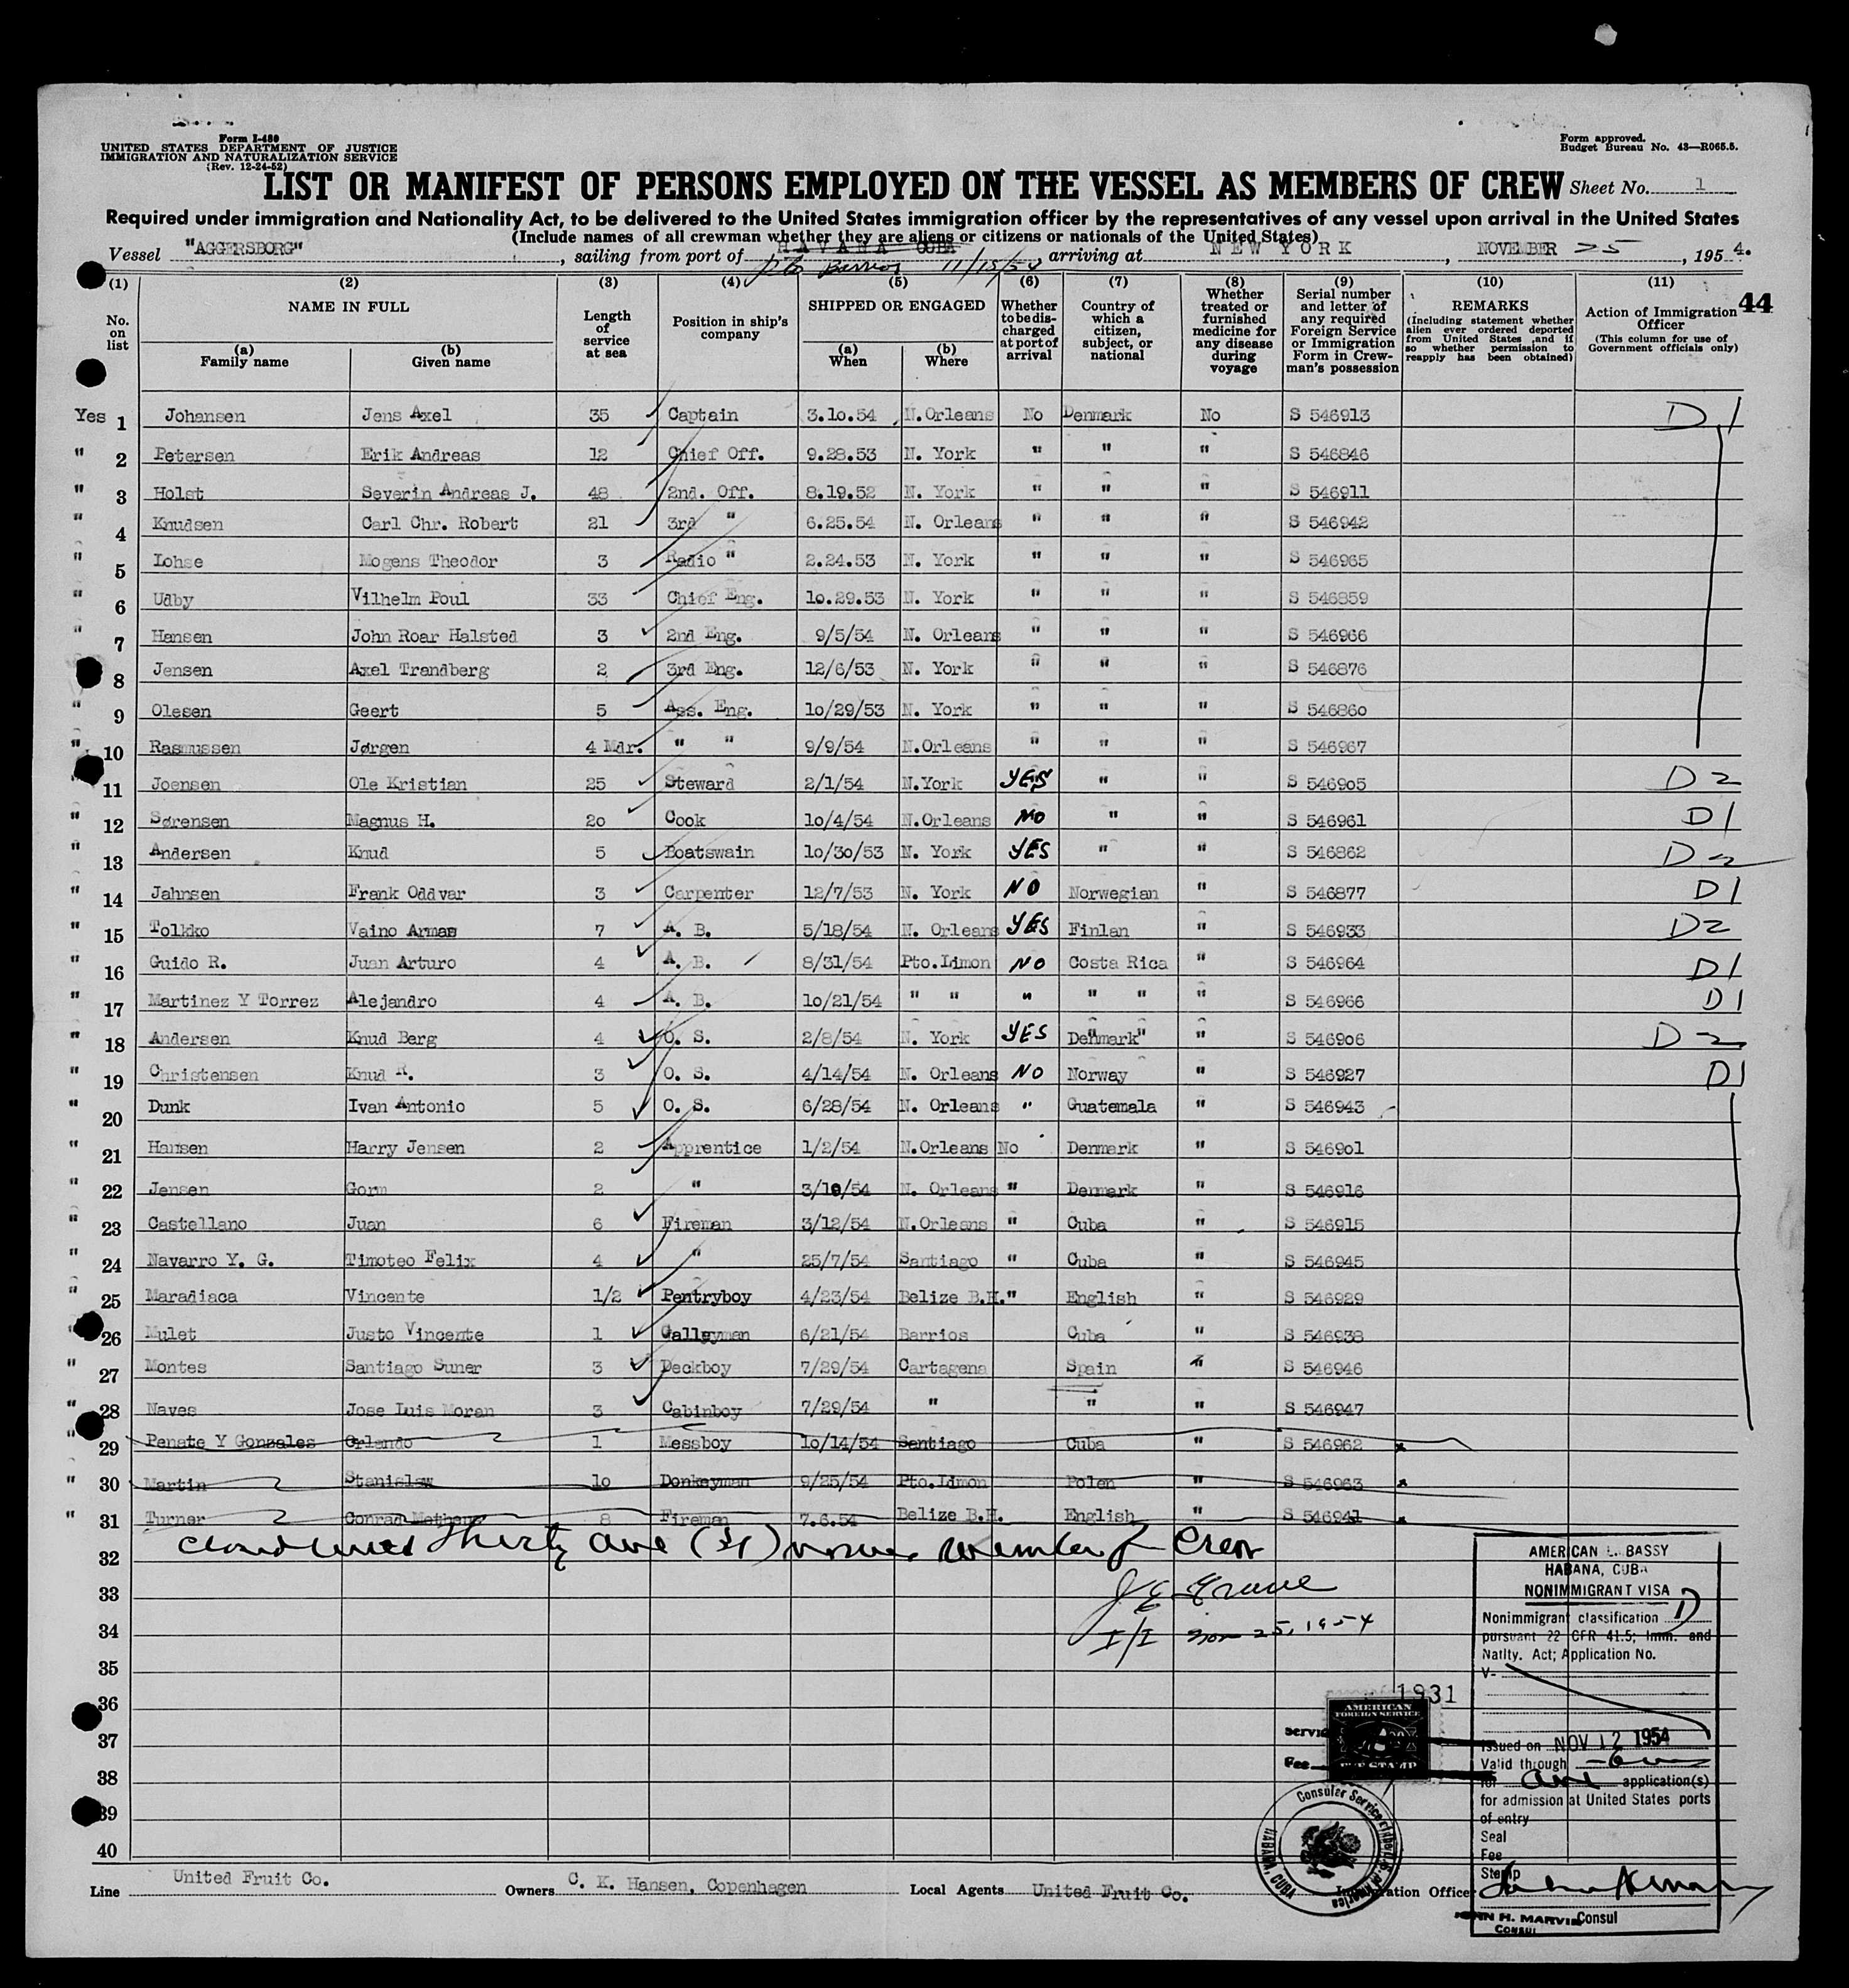 Form I-480
UNITED STATES DEPARTMENT OF JUSTICE
IMMIGRATION AND NATURALIZATION SERVICE
(Rev. 12-24-52)
Form approved.
Budget Bureau No. 43—R065.5.
LIST OR MANIFEST OF PERSONS EMPLOYED ON THE VESSEL AS MEMBERS OF CREW Sheet No. 1
Required under immigration and Nationality Act, to be delivered to the United States immigration officer by the representatives of any vessel upon arrival in the United States
(Include names of all crewman whether they are aliens or citizens or nationals of the United States)
Vessel "AGGERSBORG", sailing from port of HAVANA CUBA arriving at NEW YORK, NOVEMBER 25, 1954.
Pto Barrios 11/15/54
(1) (2) (3) (4) (5) (6) (7) (8) (9) (10) (11)
No. on list
NAME IN FULL
(a) Family name
(b) Given name
Length of service at sea
Position in ship's company
SHIPPED OR ENGAGED
(a) When
(b) Where
Whether to be discharged at port of arrival
Country of which a citizen, subject, or national
Whether treated or furnished medicine for any disease during voyage
Serial number and letter of any required Foreign Service or Immigration Form in Crewman's possession
REMARKS
(Including statement whether alien ever ordered deported from United States ,and if so whether permission to reapply has been obtained)
Action of Immigration Officer
(This column for use of Government officials only)
44
Yes 1 Johansen Jens Axel 35 Captain 3.10.54 N.Orleans No Denmark No S 546913 D 1
" 2 Petersen Erik Andreas 12 Chief Off. 9.28.53 N. York " " " S 546846
" 3 Holst Severin Andreas J. 48 2nd. Off. 8.19.52 N. York " " " S 546911
" 4 Knudsen Carl Chr. Robert 21 3rd " 6.25.54 N. Orleans " " " S 546942
" 5 Lohse Mogens Theodor 3 Radio " 2.24.53 N. York " " " S 546965
" 6 Udby Vilhelm Poul 33 Chief Eng. 10.29.53 N. York " " " S 546859
" 7 Hansen John Roar Halsted 3 2nd Eng. 9/5/54 N. Orleans " " " S 546966
" 8 Jensen Axel Trandberg 2 3rd Eng. 12/6/53 N. York " " " S 546876
" 9 Olesen Geert 5 Ass. Eng. 10/29/53 N. York " " " S 546860
" 10 Rasmussen Jørgen 4 Mdr. " " 9/9/54 N.Orleans " " " S 546967
" 11 Joensen Ole Kristian 25 Steward 2/1/54 N.York YES " " S 546905 D 2
" 12 Sørensen Magnus H. 20 Cook 10/4/54 N.Orleans NO " " S 546961 D 1
" 13 Andersen Knud 5 Boatswain 10/30/53 N. York YES " " S 546862 D 2
" 14 Jahnsen Frank Oddvar 3 Carpenter 12/7/53 N. York NO Norwegian " S 546877 D 1
" 15 Tolkko Vaino Armas 7 A. B. 5/18/54 N. Orleans YES Finlan " S 546933 D 2
" 16 Guido R. Juan Arturo 4 A. B. 8/31/54 Pto.Limon NO Costa Rica " S 546964 D 1
" 17 Martinez Y Torrez Alejandro 4 A. B. 10/21/54 " " " " " " S 546966 D 1
" 18 Andersen Knud Berg 4 O. S. 2/8/54 N. York YES Denmark " S 546906 D 2
" 19 Christensen Knud R. 3 O. S. 4/14/54 N. Orleans NO Norway " S 546927 D 1
" 20 Dunk Ivan Antonio 5 O. S. 6/28/54 N. Orleans " Guatemala " S 546943
" 21 Hansen Harry Jensen 2 Apprentice 1/2/54 N.Orleans No Denmark " S 546901
" 22 Jensen Gorm 2 " 3/10/54 N. Orleans " Denmark " S 546916
" 23 Castellano Juan 6 Fireman 3/12/54 N.Orleans " Cuba " S 546915
" 24 Navarro Y. G. Timoteo Felix 4 " 25/7/54 Santiago " Cuba " S 546945
" 25 Maradiaca Vincente 1/2 Pentryboy 4/23/54 Belize B.H. " English " S 546929
" 26 Mulet Justo Vincente 1 Galleyman 6/21/54 Barrios Cuba " S 546938
" 27 Montes Santiago Suner 3 Deckboy 7/29/54 Cartagena Spain " S 546946
" 28 Naves Jose Luis Moran 3 Cabinboy 7/29/54 " " " S 546947
" 29 Penate Y Gonzales Orlando 1 Messboy 10/14/54 Santiago Cuba " S 546962 x
" 30 Martin Stanislaw 10 Donkeyman 9/25/54 Pto.Limon Polen " S 546963 x
" 31 Turner Conrad 8 Fireman 7.6.54 Belize B.H. English " S 546941 x
32 thirty one (31) members of Crew
33
34 I/I Nov 25, 1954
35
36
37
38
39
40
AMERICAN EMBASSY
HABANA, CUBA
NONIMMIGRANT VISA
Nonimmigrant classification D
pursuant 22 CFR 41.5; Imm. and
Natlty. Act; Application No.
V-
Issued on NOV 12 1954
Valid through
for one application(s)
for admission at United States ports
of entry
Seal
Fee
Stamp
JOHN H. MARVIN Consul
CONSUL
1931
Service
Fee
AMERICAN
FOREIGN SERVICE
FEE STAMP
Consular Service
HABANA, CUBA
Line United Fruit Co. Owners C. K. Hansen, Copenhagen Local Agents United Fruit Co. Immigration Officer